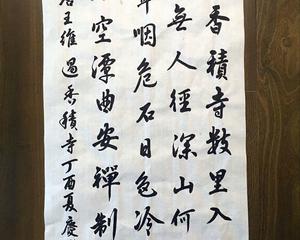 香積寺数里入
無人徑深山何
咽危石日色冷
空潭曲安禪制
王維過香積寺丁酉夏慶